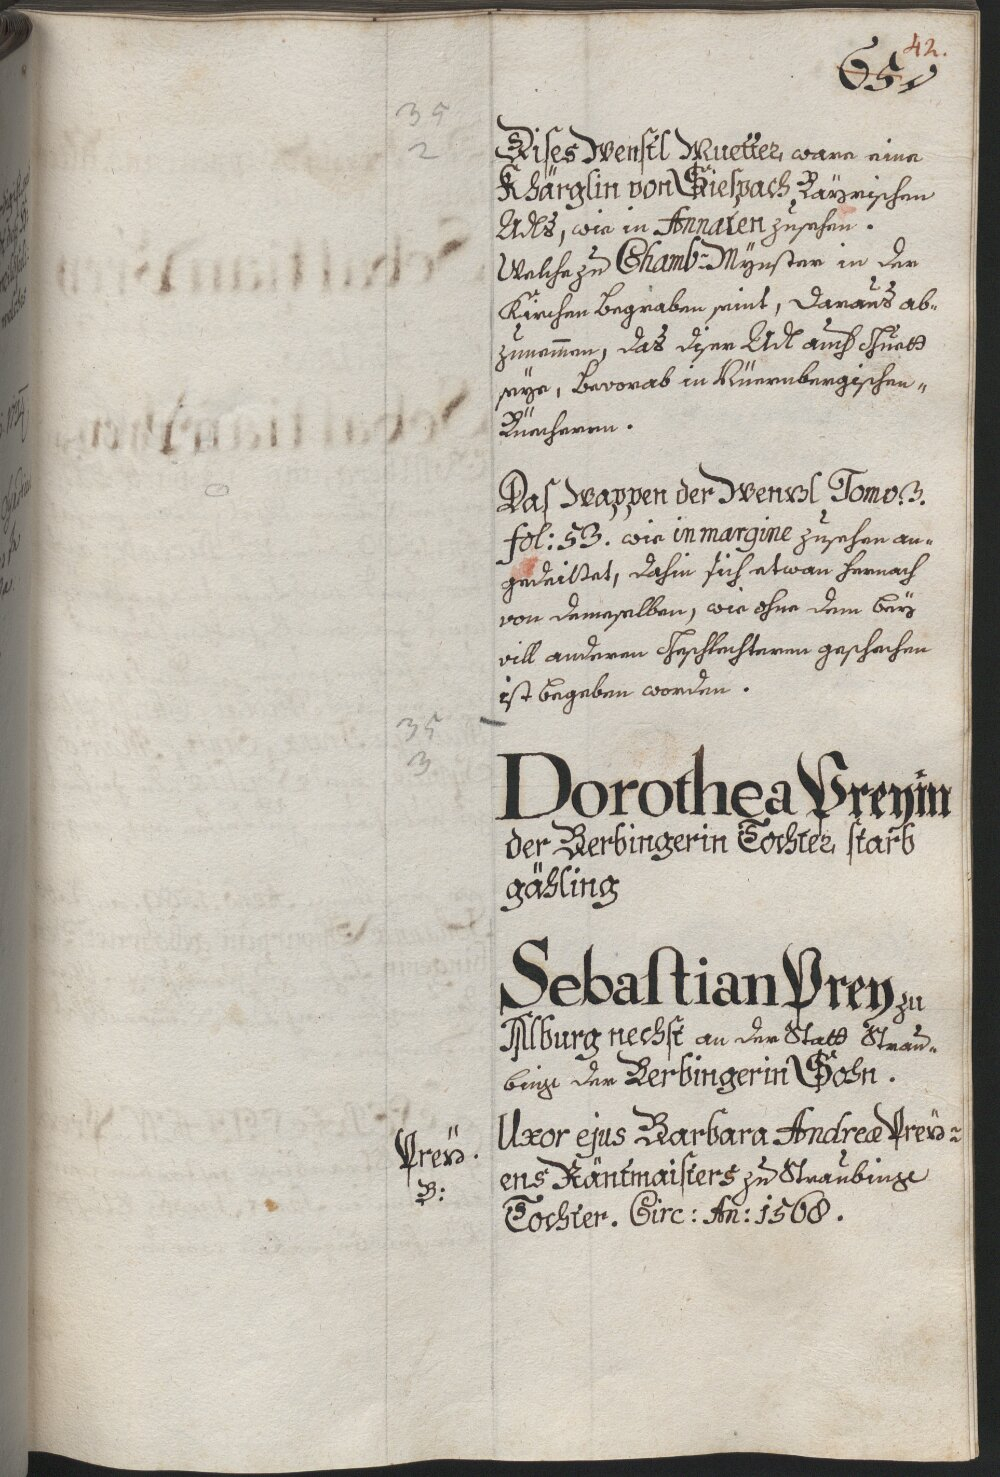 42.
651
35
2
Dises Wenstl Muetter, ware eine
Khärglin von Siespach Bayrischen
Adls, wie in Annalen zusehen.
Welche zu Chamb-Mynster in der
Kirchen begraben seint, daraus ab-
zunemmen, das diser Adl auch Thuett
seye, bevorab in Nüernbergischen
Büecheren.
Das Wappen der Wenzl Tomo. 3.
fol: 53. wie in margine zusehen an-
gedeittet, dahin sich etwan hernach
von demeselben, wie ohne dem bey
vill anderen Geschlechteren geschehen
ist begeben worden.
35
3
Dorothea Preyin
der Berbingerin Tochter, starb
gähling
Sebastian Prey zu
Alburg nechst an der Statt Strau-
binge der Berbingerin Sohn.
Preÿ.
B:
Uxor ejus Barbara Andreæ Preÿ-
ens Räntmaisters zu Straubinge
Tochter. Circ: An: 1568.